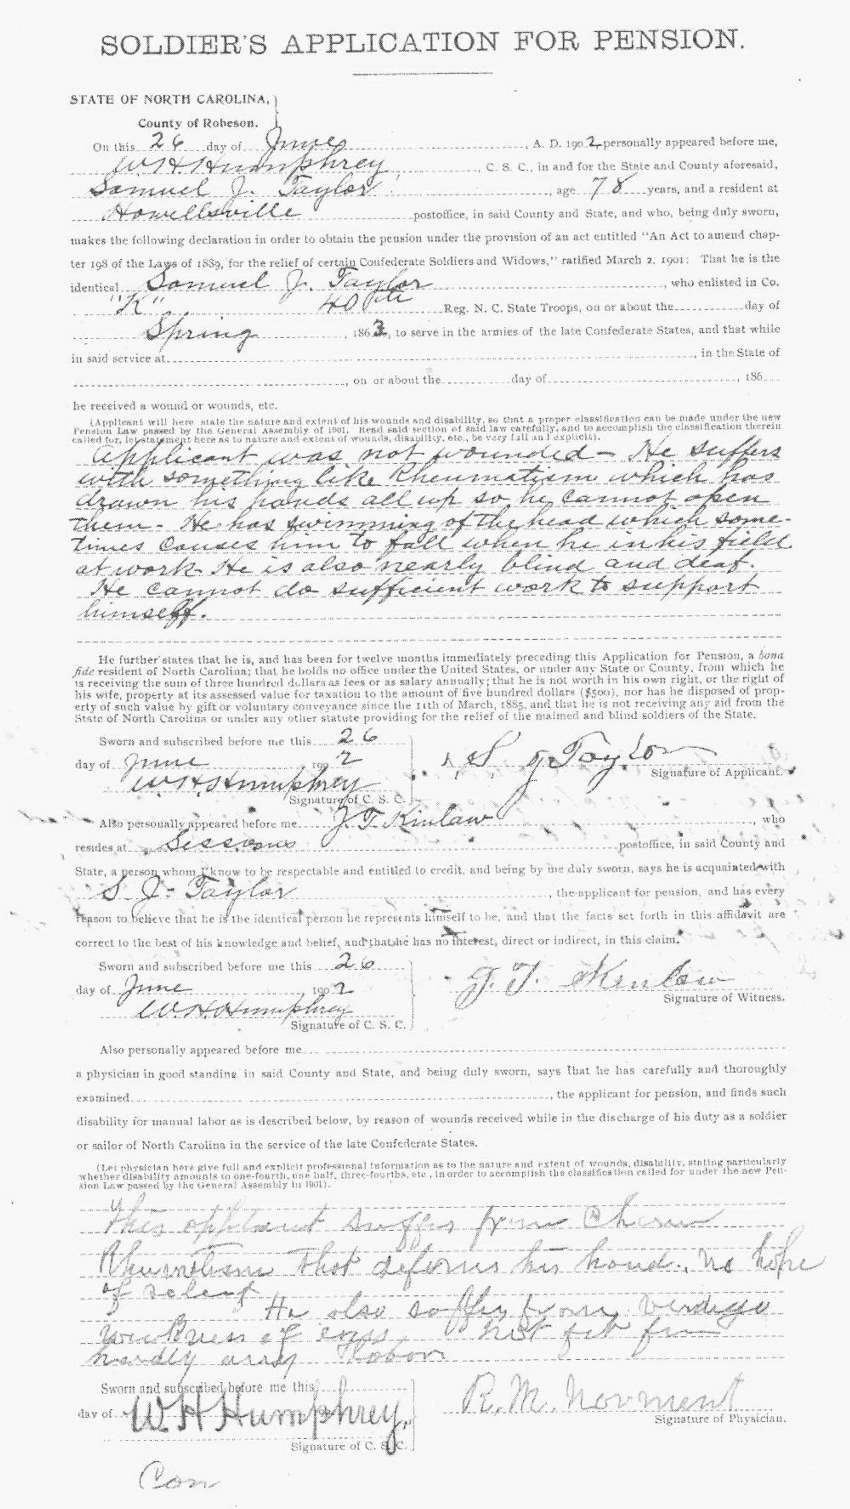 SOLDIER'S APPLICATION FOR PENSION.
STATE OF NORTH CAROLINA,
County of Robeson.
On this 26 day of June, A. D. 1902 personally appeared before me,
W. H. Humphrey, C. S. C., in and for the State and County aforesaid,
Samuel J. Taylor, age 78 years, and a resident at
Howellsville postoffice, in said County and State, and who, being duly sworn,
makes the following declaration in order to obtain the pension under the provision of an act entitled "An Act to amend chap-
ter 198 of the Laws of 1889, for the relief of certain Confederate Soldiers and Widows," ratified March 2, 1901: That he is the
identical Samuel J. Taylor, who enlisted in Co.
"K" 40th Reg. N. C. State Troops, on or about the day of
Spring, 1863, to serve in the armies of the late Confederate States, and that while
in said service at, in the State of
, on or about the day of, 186
he received a wound or wounds, etc.
(Applicant will here state the nature and extent of his wounds and disability, so that a proper classification can be made under the new
Pension Law passed by the General Assembly of 1901. Read said section of said law carefully, and to accomplish the classification therein
called for, let statement here as to nature and extent of wounds, disability, etc., be very full and explicit).
Applicant was not wounded - He suffers
with something like Rheumatism which has
drawn his hands all up so he cannot open
them - He has swimming of the head which some-
times causes him to fall when he in his field
at work. He is also nearly blind and deaf.
He cannot do sufficient work to support
himself.
He further states that he is, and has been for twelve months immediately preceding this Application for Pension, a bona
fide resident of North Carolina; that he holds no office under the United States, or under any State or County, from which he
is receiving the sum of three hundred dollars as fees or as salary annually; that he is not worth in his own right, or the right of
his wife, property at its assessed value for taxation to the amount of five hundred dollars ($500), nor has he disposed of prop-
erty of such value by gift or voluntary conveyance since the 11th of March, 1885, and that he is not receiving any aid from the
State of North Carolina or under any other statute providing for the relief of the maimed and blind soldiers of the State.
Sworn and subscribed before me this 26
day of June 1902
S J Taylor
Signature of Applicant.
W. H. Humphrey
Signature of C. S. C.
Also personally appeared before me J. T. Kinlaw, who
resides at Sessoms postoffice, in said County and
State, a person whom I know to be respectable and entitled to credit, and being by me duly sworn, says he is acquainted with
S. J. Taylor, the applicant for pension, and has every
reason to believe that he is the identical person he represents himself to be, and that the facts set forth in this affidavit are
correct to the best of his knowledge and belief, and that he has no interest, direct or indirect, in this claim.
Sworn and subscribed before me this 26
day of June 1902
J. T. Kinlaw
Signature of Witness.
W. H. Humphrey
Signature of C. S. C.
Also personally appeared before me
a physician in good standing in said County and State, and being duly sworn, says that he has carefully and thoroughly
examined, the applicant for pension, and finds such
disability for manual labor as is described below, by reason of wounds received while in the discharge of his duty as a soldier
or sailor of North Carolina in the service of the late Confederate States.
(Let physician here give full and explicit professional information as to the nature and extent of wounds, disability, stating particularly
whether disability amounts to one-fourth, one half, three-fourths, etc., in order to accomplish the classification called for under the new Pen-
sion Law passed by the General Assembly in 1901).
This suffers from
that deforms his hand. No hope
of relief
He also suffers from
weakness of eyes not fit for
hardly any
Sworn and subscribed before me this
day of 190
R. M. Norment
Signature of Physician.
W H Humphrey,
Signature of C. S. C.
Con